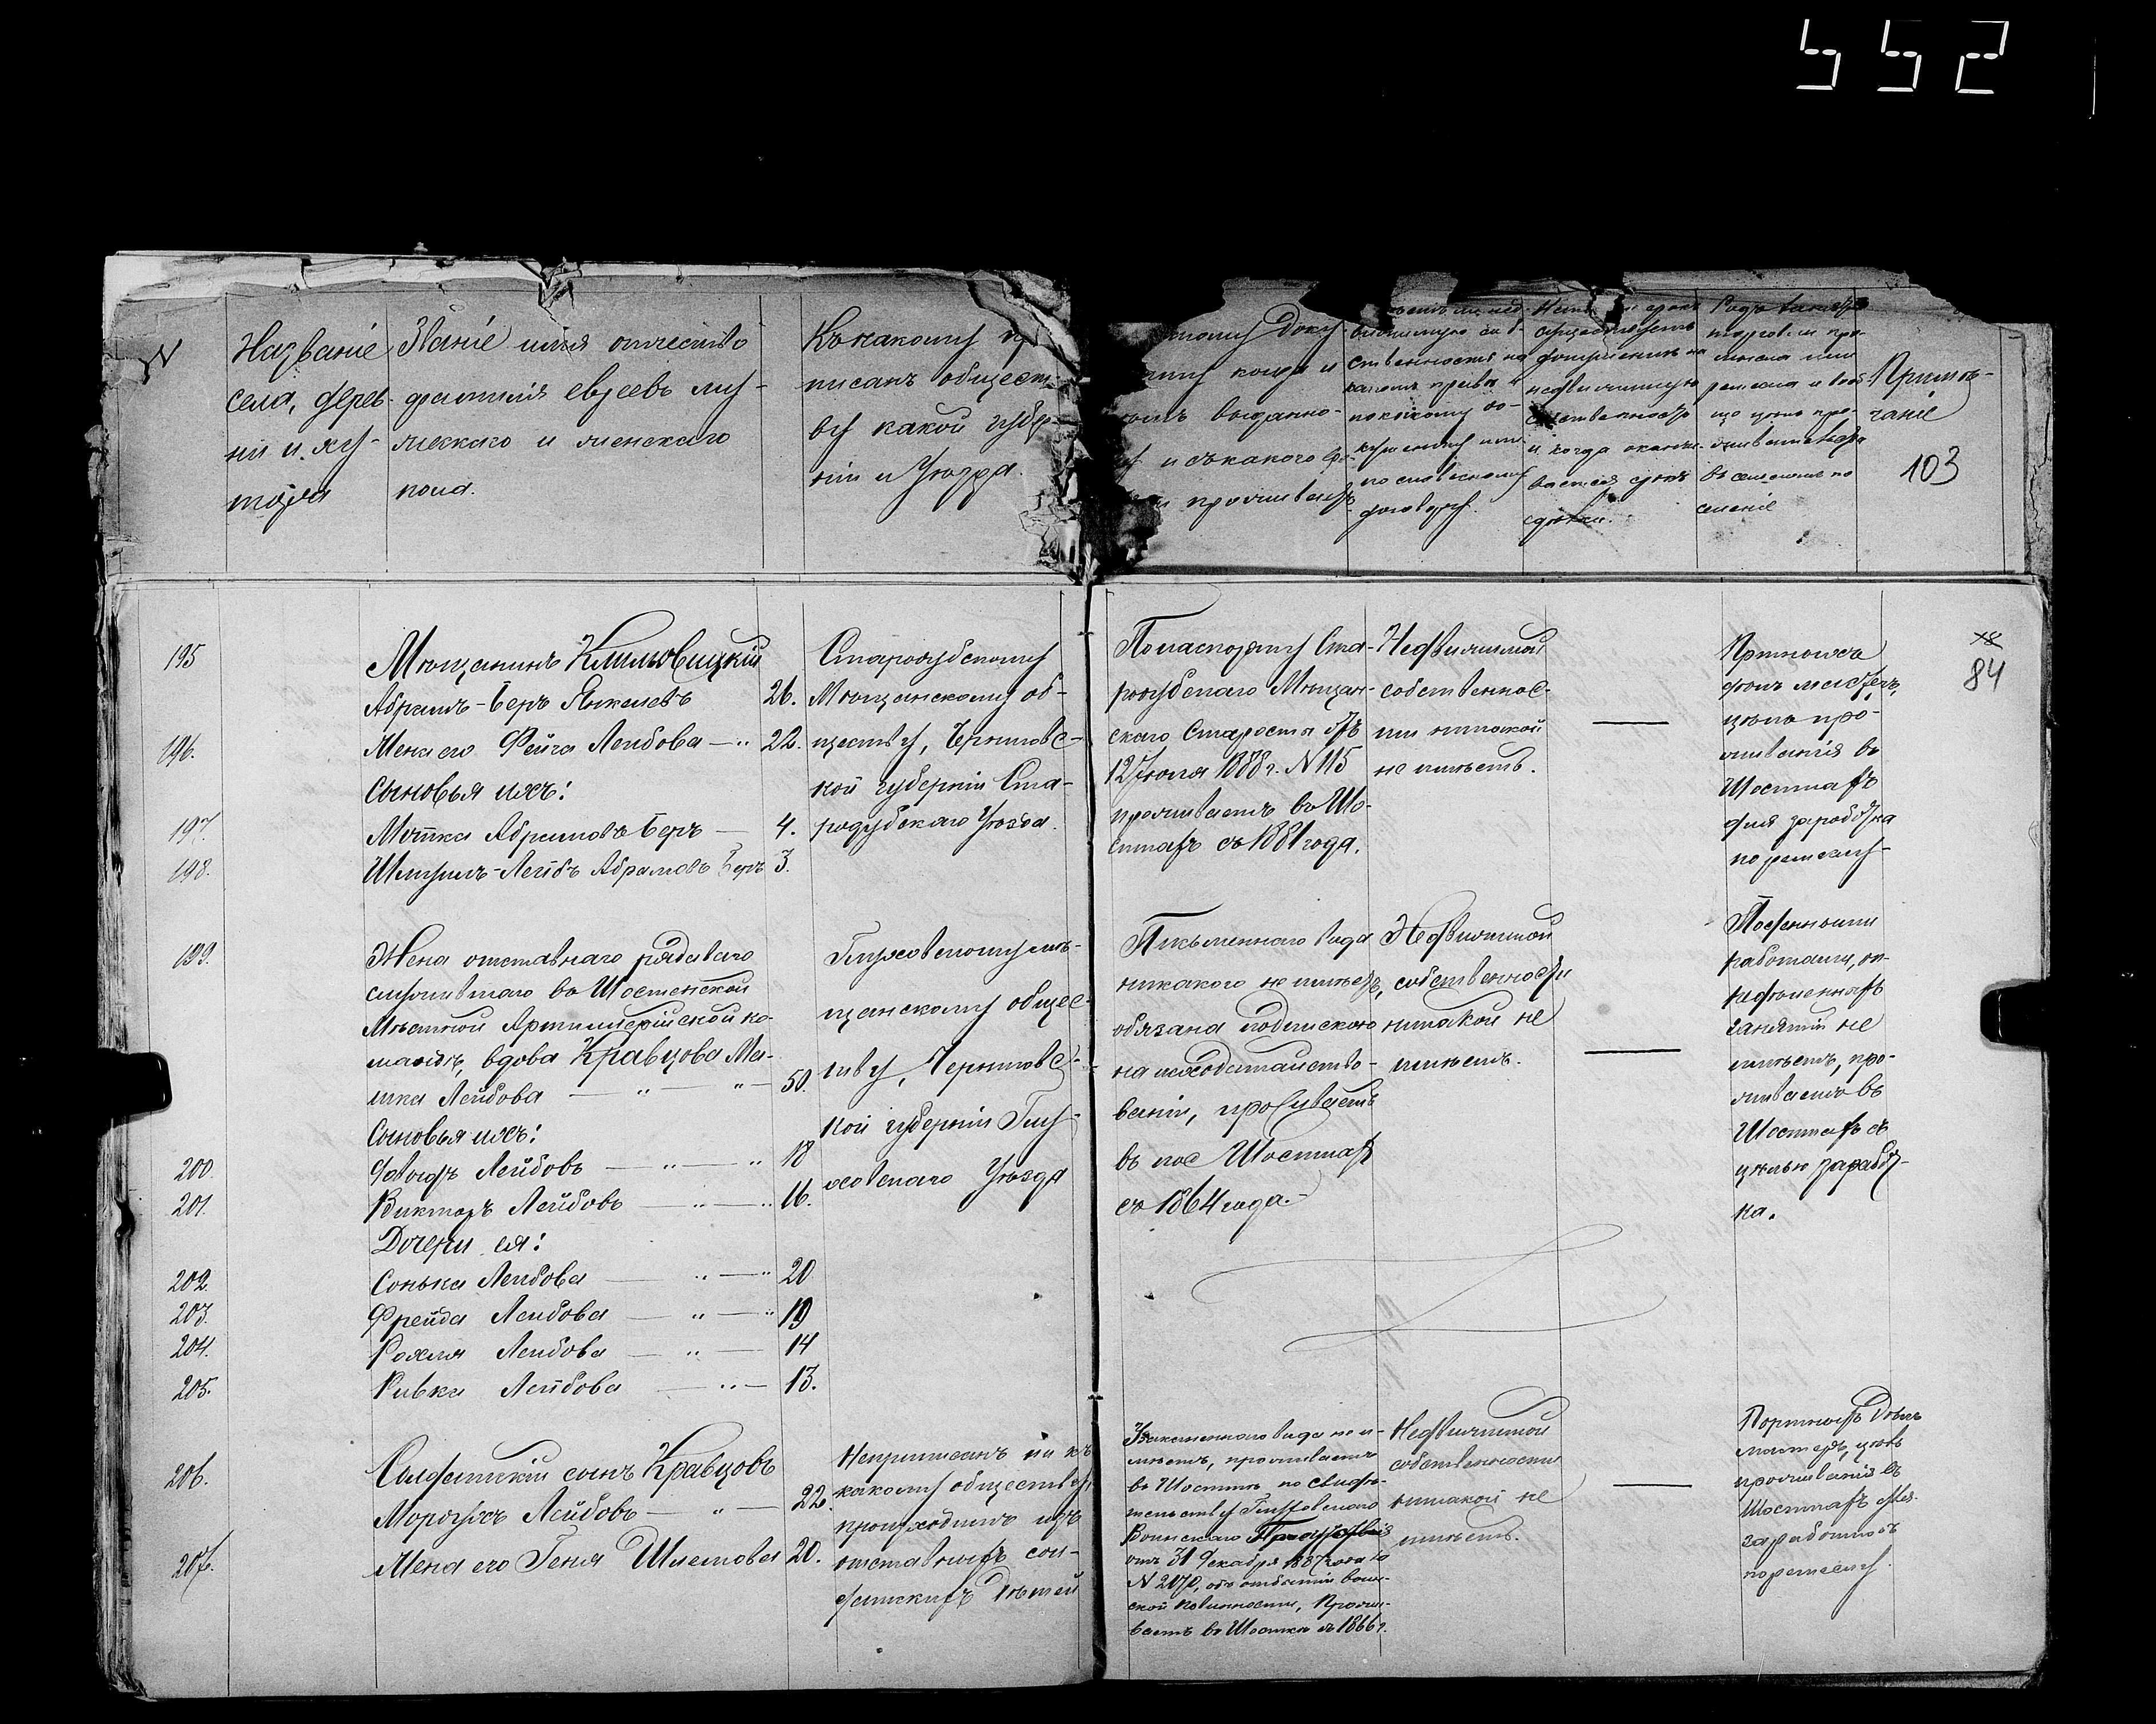 552
N
Названіе
села, дерев-
ни и ху-
тора
Званіе имя отчество
фамилія евреевъ муж-
ческаго и женскаго
пола.
Къ какому пр
писанъ общест-
ву какой губер-
ніи и Уѣзда.
доку-
когда и
выданно-
и съ какого вре-
проживаетъ
недви-
движимую соб-
ственность на
какомъ правѣ и
по какому до-
кументу или
по словесному
договору.
срокъ
существуетъ
документъ на
недвижимую
собственность
и когда оканчи-
вается срокъ
сдѣлки.
Родъ занятія
торгов. и про-
мысла или
ремесла и вооб-
ще цѣль про-
живанія
въ селеніи по
селеніе
Примѣ-
чаніе
103
195
Мѣщанинъ Климовицкій
Абрамъ-Беръ Янкелевъ 26.
196.
Жена его Фейга Лейбова — 22.
Сыновья ихъ:
197.
Мотка Абрамовъ Беръ — 4.
198.
Шмуилъ-Лейбъ Абрамовъ Беръ 3.
Стародубскому
Мѣщанскому об-
ществу, Чернигов-
кой губерніи Ста-
родубскаго Уѣзда.
По паспорту Ста-
родубскаго Мѣщан-
скаго Старосты отъ
12 Іюля 1888 г. N 115
проживаетъ въ Шо-
сткѣ съ 1881 года.
Недвижимой
собственнос-
ти никакой
не имѣетъ.
—
Портной
мастеръ,
цѣль про-
живанія въ
Шосткѣ
для заработка
по ремеслу
78
84
199.
Жена отставнаго рядоваго
служившаго въ Шостенской
Мѣстной Артиллерійской ко-
мандѣ, вдова Кравцова Ма-
шка Лейбова — " — " — 50
Сыновья ихъ:
200.
Давыдъ Лейбовъ — " — " 18
201.
Викторъ Лейбовъ — " — " 16.
Дочери ея:
202.
Сонька Лейбова — " — " 20
203.
Фрейда Лейбова — " — " 19
204.
Рохля Лейбова — " — 14
205.
Ривка Лейбова — " — 13.
Глуховскому мѣ-
щанскому общес-
тву, Чернигов-
кой губерніи Глу-
ховскаго Уѣзда
Письменнаго вида
никакого не имѣетъ,
обязана подпискою
на исходатайство-
ваніи, проживаетъ
въ пос Шосткѣ
съ 1864 года.
Недвижимой
собственности
никакой не
имѣетъ.
—
Поденными
работами, оп-
редѣленныхъ
занятій не
имѣетъ, про-
живаетъ въ
Шосткѣ съ
цѣлью заработ-
ка.
206.
Солдатскій сынъ Кравцовъ
Мордухъ Лейбовъ — " — 22.
207.
Жена его Геня Шлемова 20.
Неприписанъ ни къ
какому обществу,
происходитъ изъ
отставныхъ сол-
датскихъ дѣтей
Письменнаго вида не и-
мѣетъ, проживаетъ
въ Шосткѣ по свидѣ-
тельству Глуховскаго
Воинскаго Присутствія
отъ 31 Декабря 1887 года за
N 2070, объ отбытіи воин-
ской повинности, Прожи-
ваетъ въ Шосткѣ съ 1866 г.
Недвижимой
собственности
никакой не
имѣетъ.
—
Портныхъ дѣлъ
мастеръ, цѣль
проживанія въ
Шосткѣ для
заработковъ
по ремеслу.